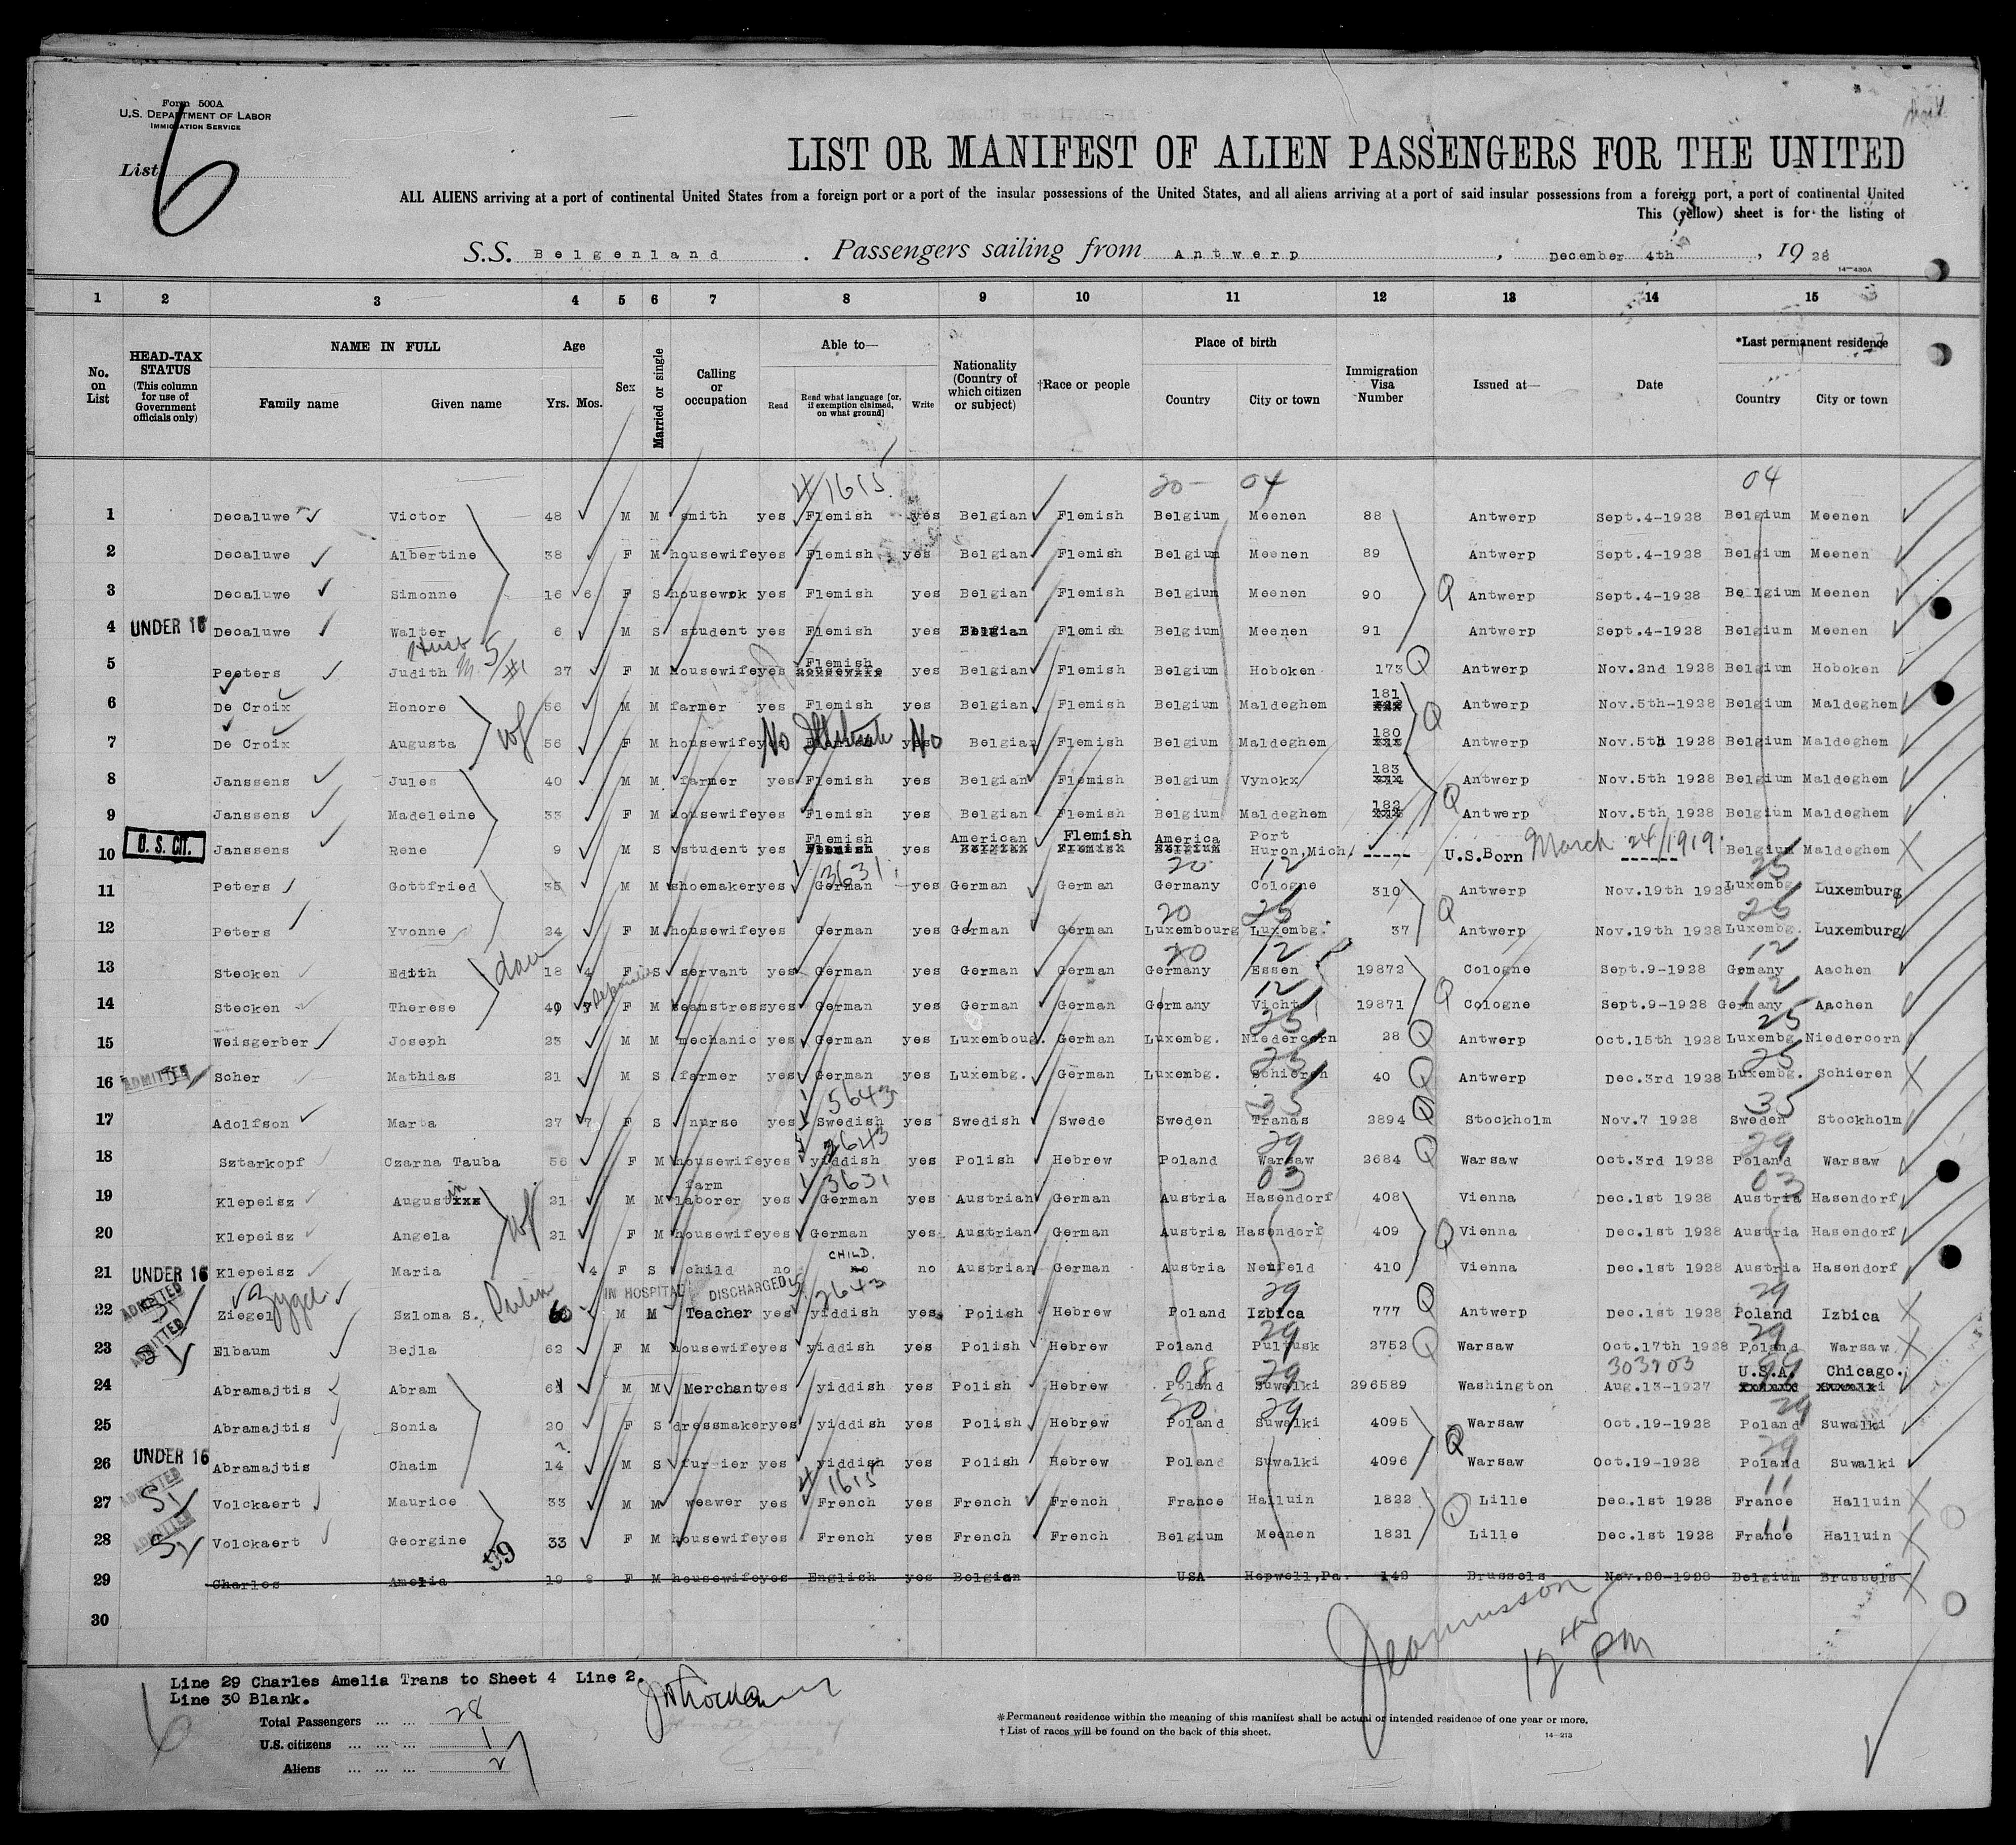 Form 500A
U.S. DEPARTMENT OF LABOR
IMMIGRATION SERVICE
List 6
LIST OR MANIFEST OF ALIEN PASSENGERS FOR THE UNITED
ALL ALIENS arriving at a port of continental United States from a foreign port or a port of the insular possessions of the United States, and all aliens arriving at a port of said insular possessions from a foreign port, a port of continental United
This (yellow) sheet is for the listing of
S.S. Belgenland . Passengers sailing from Antwerp , December 4th , 1928
14—430A
1 2 3 4 5 6 7 8 9 10 11 12 13 14 15
No. on List
HEAD-TAX STATUS (This column for use of Government officials only)
NAME IN FULL Family name Given name
Age Yrs. Mos.
Sex
Married or single
Calling or occupation
Able to— Read Read what language [or, if exemption claimed, on what ground] Write
Nationality (Country of which citizen or subject)
†Race or people
Place of birth Country City or town
Immigration Visa Number
Issued at—
Date
*Last permanent residence Country City or town
4/1615 20- 04 04
1 Decaluwe Victor 48 M M smith yes Flemish yes Belgian Flemish Belgium Meenen 88 Antwerp Sept.4-1928 Belgium Meenen
2 Decaluwe Albertine 38 F M housewife yes Flemish yes Belgian Flemish Belgium Meenen 89 Antwerp Sept.4-1928 Belgium Meenen
3 Decaluwe Simonne 16 6 F S housewrk yes Flemish yes Belgian Flemish Belgium Meenen 90 Q Antwerp Sept.4-1928 Belgium Meenen
4 UNDER 16 Decaluwe Walter 6 M S student yes Flemish yes Belgian Flemish Belgium Meenen 91 Antwerp Sept.4-1928 Belgium Meenen
5 Peeters Judith 27 F M housewife yes Flemish yes Belgian Flemish Belgium Hoboken 173 Q Antwerp Nov.2nd 1928 Belgium Hoboken
6 De Croix Honore 56 M M farmer yes Flemish yes Belgian Flemish Belgium Maldeghem 181 Q Antwerp Nov.5th-1928 Belgium Maldeghem
7 De Croix Augusta wf 56 F M housewife No No Belgian Flemish Belgium Maldeghem 180 Antwerp Nov.5th 1928 Belgium Maldeghem
8 Janssens Jules 40 M M farmer yes Flemish yes Belgian Flemish Belgium Vynckx 183 Antwerp Nov.5th 1928 Belgium Maldeghem
9 Janssens Madeleine 33 F M housewife yes Flemish yes Belgian Flemish Belgium Maldeghem 182 Q Antwerp Nov.5th 1928 Belgium Maldeghem
10 U.S. CIT. Janssens Rene 9 M S student yes Flemish yes American Flemish America Port Huron,Mich. ----- U.S.Born March 24/1919 Belgium Maldeghem
3631 20 12 25
11 Peters Gottfried 35 M M shoemaker yes German yes German German Germany Cologne 310 Antwerp Nov.19th 1928 Luxembg. Luxemburg
20 25 25
12 Peters Yvonne 24 F M housewife yes German yes German German Luxembourg Luxembg. 37 Q Antwerp Nov.19th 1928 Luxembg. Luxemburg
20 12 12
13 Stecken Edith dau 18 4 F S servant yes German yes German German Germany Essen 19872 Cologne Sept.9-1928 Grmany Aachen
12 12
14 Stecken Therese 49 F M seamstress yes German yes German German Germany Vicht 19871 Q Cologne Sept.9-1928 Germany Aachen
25 25
15 Weisgerber Joseph 23 M M mechanic yes German yes Luxemboug. German Luxembg. Niedercorn 28 Q Antwerp Oct.15th 1928 Luxembg Niedercorn
25 25
16 ADMITTED Scher Mathias 21 M S farmer yes German yes Luxembg. German Luxembg. Schieren 40 Q Antwerp Dec.3rd 1928 Luxembg. Schieren
5643 35 35
17 Adolfson Marta 27 7 F S nurse yes Swedish yes Swedish Swede Sweden Tranas 2894 Q Stockholm Nov.7 1928 Sweden Stockholm
2643 29 29
18 Sztarkopf Czarna Tauba 56 F M housewife yes yiddish yes Polish Hebrew Poland Warsaw 2684 Q Warsaw Oct.3rd 1928 Poland Warsaw
3631 03 03
19 Klepeisz Augustin 21 M M farm laborer yes German yes Austrian German Austria Hasendorf 408 Vienna Dec.1st 1928 Austria Hasendorf
20 Klepeisz Angela wf 21 F M housewife yes German yes Austrian German Austria Hasendorf 409 Q Vienna Dec.1st 1928 Austria Hasendorf
21 UNDER 16 Klepeisz Maria 4 F S child no CHILD. no Austrian German Austria Neufeld 410 Vienna Dec.1st 1928 Austria Hasendorf
IN HOSPITAL DISCHARGED 2643 29 29
22 ADMITTED Ziegel Zygel Szloma S. 60 M M Teacher yes yiddish yes Polish Hebrew Poland Izbica 777 Q Antwerp Dec.1st 1928 Poland Izbica
29 29
23 ADMITTED Elbaum Bejla 62 F M housewife yes yiddish yes Polish Hebrew Poland Pultusk 2752 Q Warsaw Oct.17th 1928 Poland Warsaw
08 29 303703 99
24 Abramajtis Abram 61 M M Merchant yes yiddish yes Polish Hebrew Poland Suwalki 296589 Washington Aug.13-1927 U.S.A. Chicago.
20 29 29
25 Abramajtis Sonia 20 F S dressmaker yes yiddish yes Polish Hebrew Poland Suwalki 4095 Warsaw Oct.19-1928 Poland Suwalki
29
26 UNDER 16 Abramajtis Chaim 14 M S furrier yes yiddish yes Polish Hebrew Poland Suwalki 4096 Q Warsaw Oct.19-1928 Poland Suwalki
4/1615 11
27 ADMITTED Volckaert Maurice 33 M M weawer yes French yes French French France Halluin 1822 Lille Dec.1st 1928 France Halluin
11
28 ADMITTED Volckaert Georgine 99 33 F M housewife yes French yes French French Belgium Meenen 1821 Lille Dec.1st 1928 France Halluin
29 Charles Amelia 19 8 F M housewife yes English yes Belgian USA Hopwell,Pa. 142 Brussels Nov.20-1928 Belgium Brussels
30
Line 29 Charles Amelia Trans to Sheet 4 Line 2.
Line 30 Blank.
12 45 PM
Total Passengers ... ... 28
U.S. citizens ... ... ... 1
Aliens ... ... ... 27
6
*Permanent residence within the meaning of this manifest shall be actual or intended residence of one year or more.
† List of races will be found on the back of this sheet.
14—213